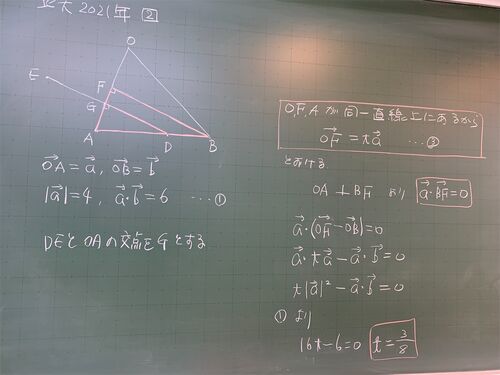 亜大2021年 ②
O
E
F
G
A
D
B
OA→=a→, OB→=b→
|a→|=4, a→·b→=6 …①
DEとOAの交点をGとする
O,F,Aが同一直線上にあるから
OF→=ta→ …②
とおける
OA⊥BF より a→·BF→=0
a→·(OF→-OB→)=0
a→·ta→-a→·b→=0
t|a→|²-a→·b→=0
①より
16t-6=0 t=3/8